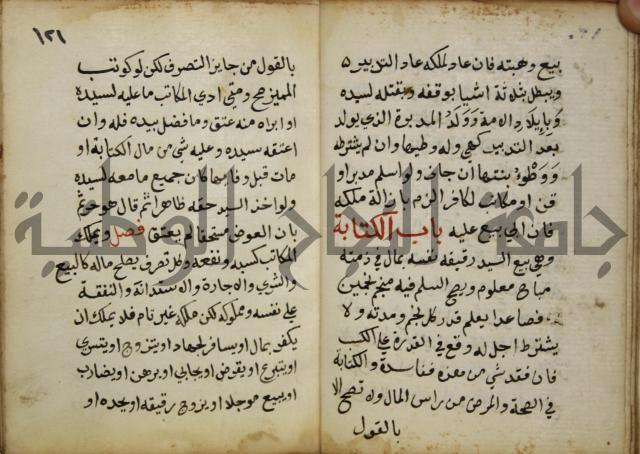 بيع وهبته فان عاد لملكه عاد التدبير ٥
ويبطل بثلاثة اشيا بوقفه وبقتله لسيده
وبايلاد الامة وولد المدبرة الذي يولد
بعد التدبير كهي وله وطيها وان لم يشترطه
ووطؤ بنتها ان جاز ولو اسلم مدبر او
قن او مكاتب لكافر الزم بازالة ملكه
فان ابى بيع عليه باب الكتابة
وهي بيع السيد رقيقه نفسه بمال في ذمته
مباح معلوم ويصح السلم فيه منجم نجمين
فصاعدا يعلم قدر كل نجم ومدته ولا
يشترط اجل له وقع في القدرة على الكسب
فان فقد شي من هذه ففاسدة والكتابة
في الصحة والمرض من راس المال ولا تصح الا
بالقول
١٢١
بالقول من جايز التصرف لكن لو كوتب
المميز صح ومتى ادى المكاتب ما عليه لسيده
او ابراه منه عتق وما فضل بيده فله وان
اعتقه سيده وعليه شي من مال الكتابة او
مات قبل وفايها كان جميع ما معه لسيده
ولو اخذ السيد حقه ظاهرا ثم قال هو حر ثم
بان العوض مستحقا لم يعتق فصل ويملك
المكاتب كسبه ونفعه وكل تصرف يصلح ماله كالبيع
والشرى والاجارة والاستدانة والنفقة
على نفسه ومملوكه لكن ملكه غير تام فلا يملك ان
يكفر بمال او يسافر لجهاد او يتزوج او يتسرى
او يتبرع او يقرض او يحابي او يرهن او يضارب
او يبيع موجلا او يزوج رقيقه او يحده او
جامعة الرياض